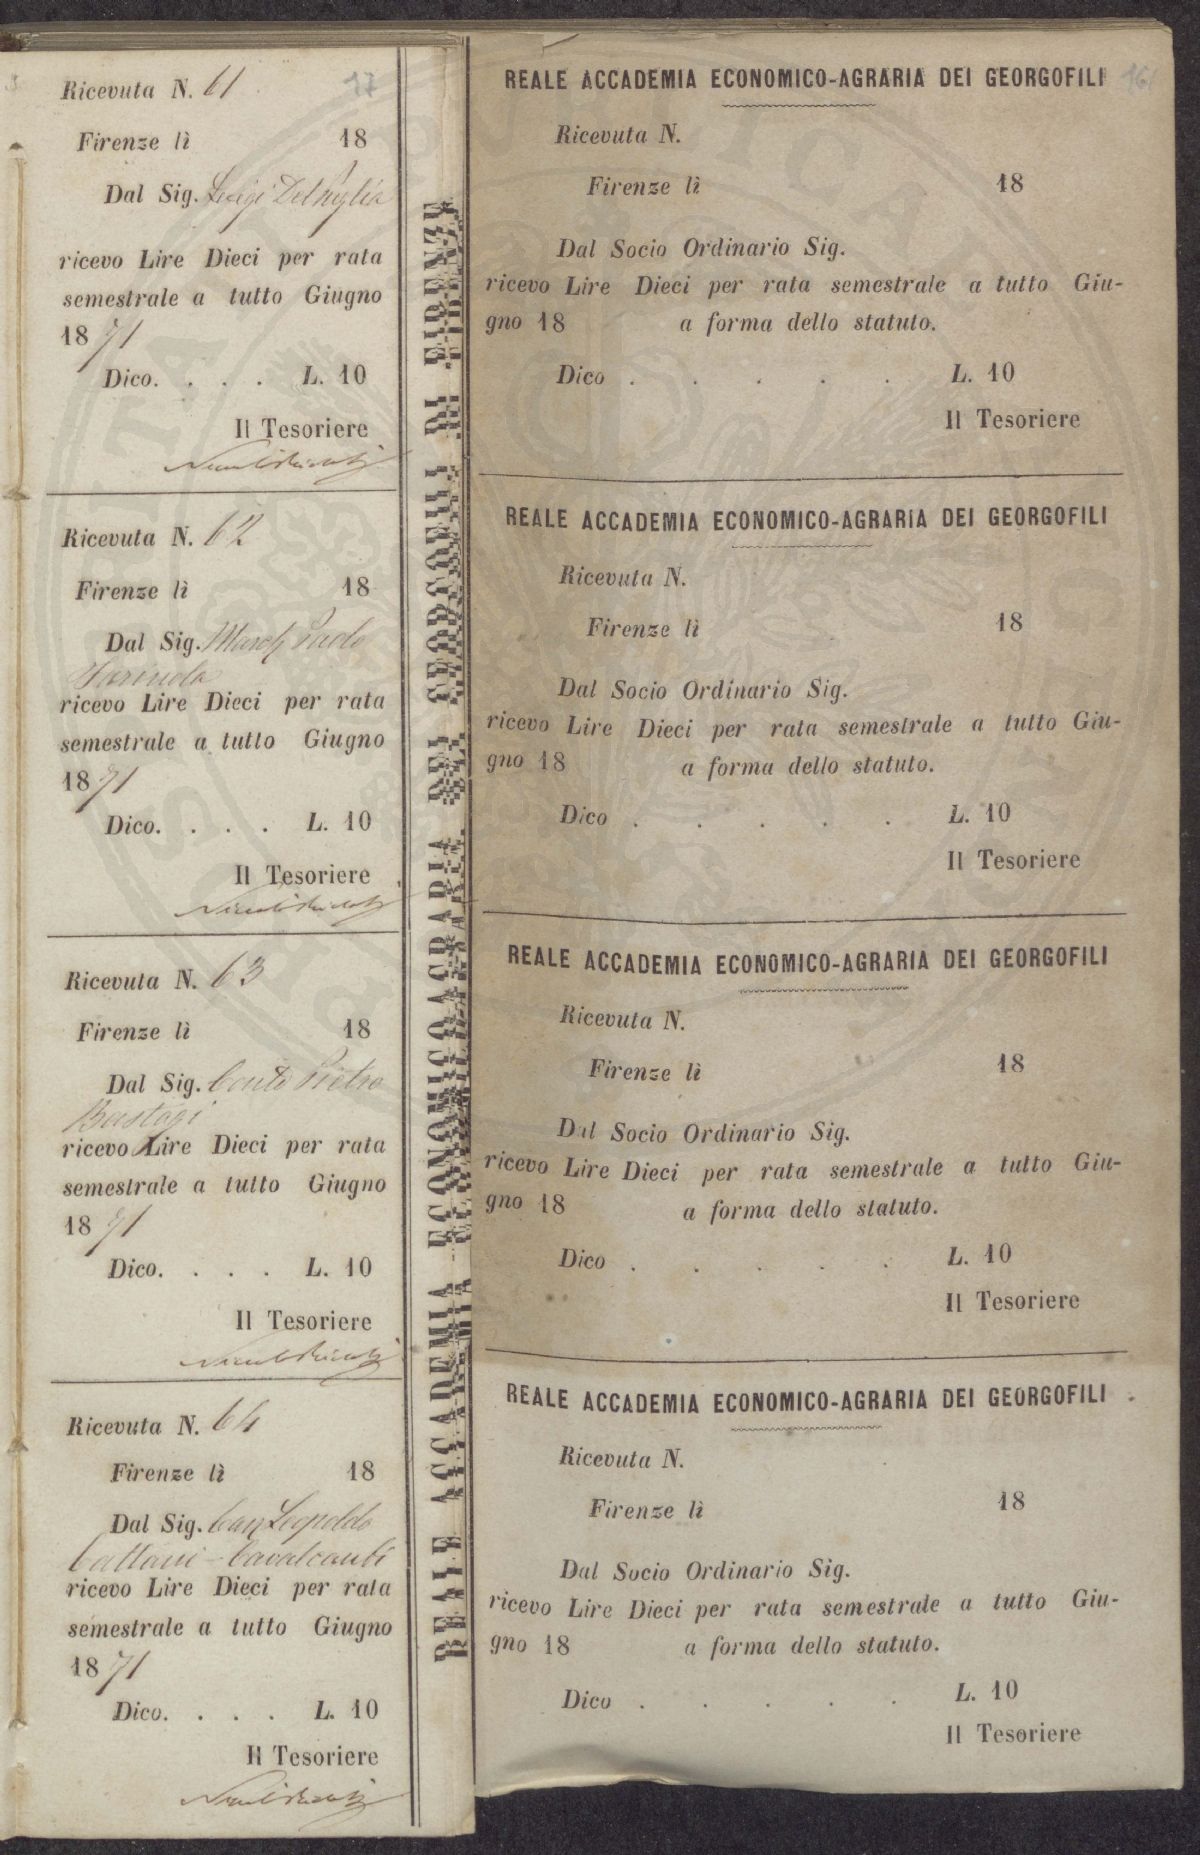 Ricevuta N. 61
17
Firenze lì 18
Dal Sig. Luigi Del Puglia
ricevo Lire Dieci per rata
semestrale a tutto Giugno
1871
Dico. . . . L. 10
Il Tesoriere
Ricevuta N. 62
Firenze lì 18
Dal Sig. March Paolo
Farinola
ricevo Lire Dieci per rata
semestrale a tutto Giugno
1871
Dico. . . . L. 10
Il Tesoriere
Ricevuta N. 63
Firenze lì 18
Dal Sig. Conte Pietro
Bastogi
ricevo Lire Dieci per rata
semestrale a tutto Giugno
1871
Dico. . . . L. 10
Il Tesoriere
Ricevuta N. 64
Firenze lì 18
Dal Sig. Cav Leopoldo
Cattani-Cavalcanti
ricevo Lire Dieci per rata
semestrale a tutto Giugno
1871
Dico. . . . L. 10
Il Tesoriere
REALE ACCADEMIA ECONOMICO AGRARIA DEI GEORGOFILI DI FIRENZE
REALE ACCADEMIA ECONOMICO-AGRARIA DEI GEORGOFILI
Ricevuta N.
Firenze lì 18
Dal Socio Ordinario Sig.
ricevo Lire Dieci per rata semestrale a tutto Giu-
gno 18 a forma dello statuto.
Dico . . . . . L. 10
Il Tesoriere
REALE ACCADEMIA ECONOMICO-AGRARIA DEI GEORGOFILI
Ricevuta N.
Firenze lì 18
Dal Socio Ordinario Sig.
ricevo Lire Dieci per rata semestrale a tutto Giu-
gno 18 a forma dello statuto.
Dico . . . . . L. 10
Il Tesoriere
REALE ACCADEMIA ECONOMICO-AGRARIA DEI GEORGOFILI
Ricevuta N.
Firenze lì 18
Dal Socio Ordinario Sig.
ricevo Lire Dieci per rata semestrale a tutto Giu-
gno 18 a forma dello statuto.
Dico . . . . . L. 10
Il Tesoriere
REALE ACCADEMIA ECONOMICO-AGRARIA DEI GEORGOFILI
Ricevuta N.
Firenze lì 18
Dal Socio Ordinario Sig.
ricevo Lire Dieci per rata semestrale a tutto Giu-
gno 18 a forma dello statuto.
Dico . . . . . L. 10
Il Tesoriere